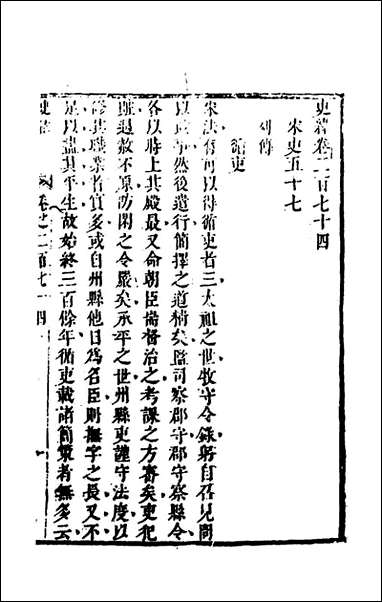 史緯卷二百七十四
宋史五十七
列傳
循吏
宋法有可以得循吏者三太祖之世牧守令錄躬自召見問
以政事然後遣行簡擇之道精矣監司察郡守郡守察縣令
各以時上其殿最又命朝臣耑督治之考課之方審矣吏犯
贓遇赦不原防閑之令嚴矣承平之世州縣吏謹守法度以
修其職業者實多或自州縣他日為名臣則撫字之長又不
足以盡其平生故始終三百餘年循吏載諸簡策者無多云
史緯 卷之二百七十四 一